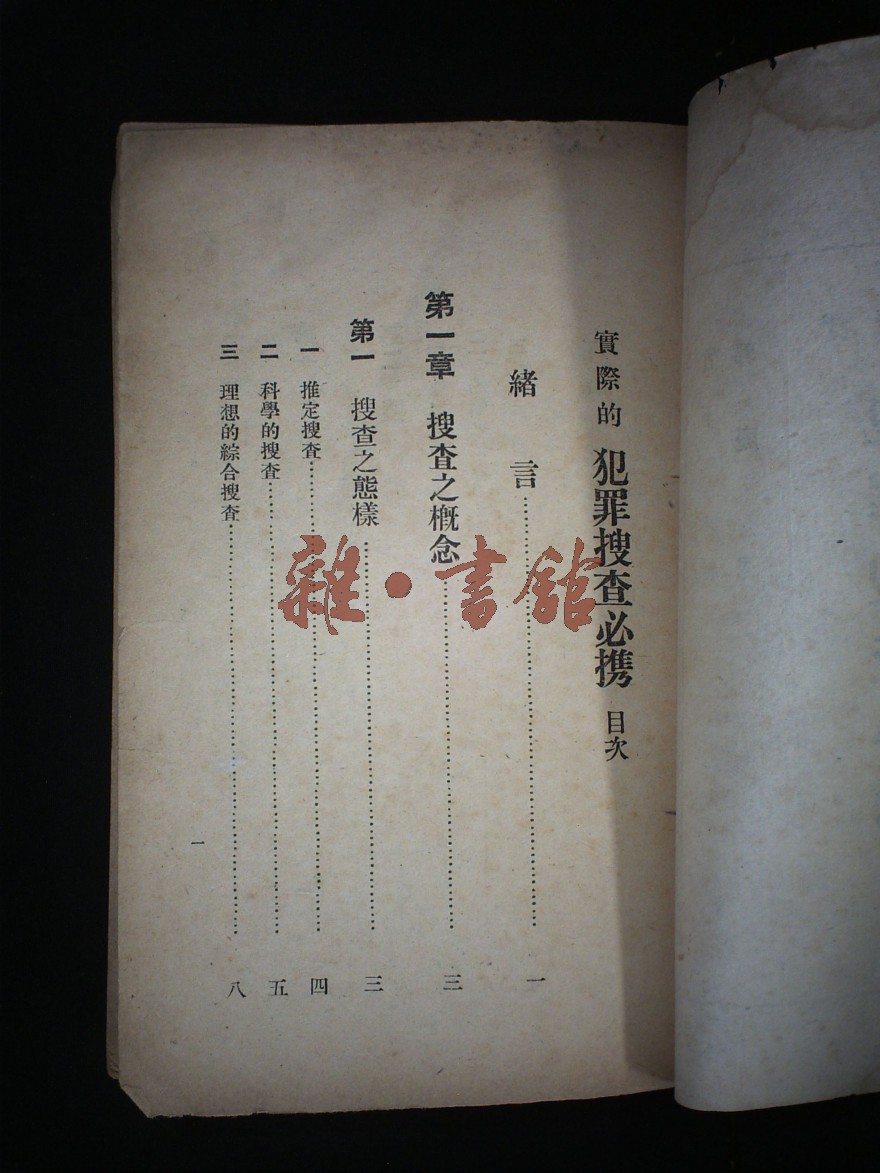 實際的 犯罪搜查必携 目次
緒言……一
第一章 搜查之概念……三
第一 搜查之態樣……三
一 推定搜查……四
二 科學的搜查……五
三 理想的綜合搜查……八
一
雜·書館